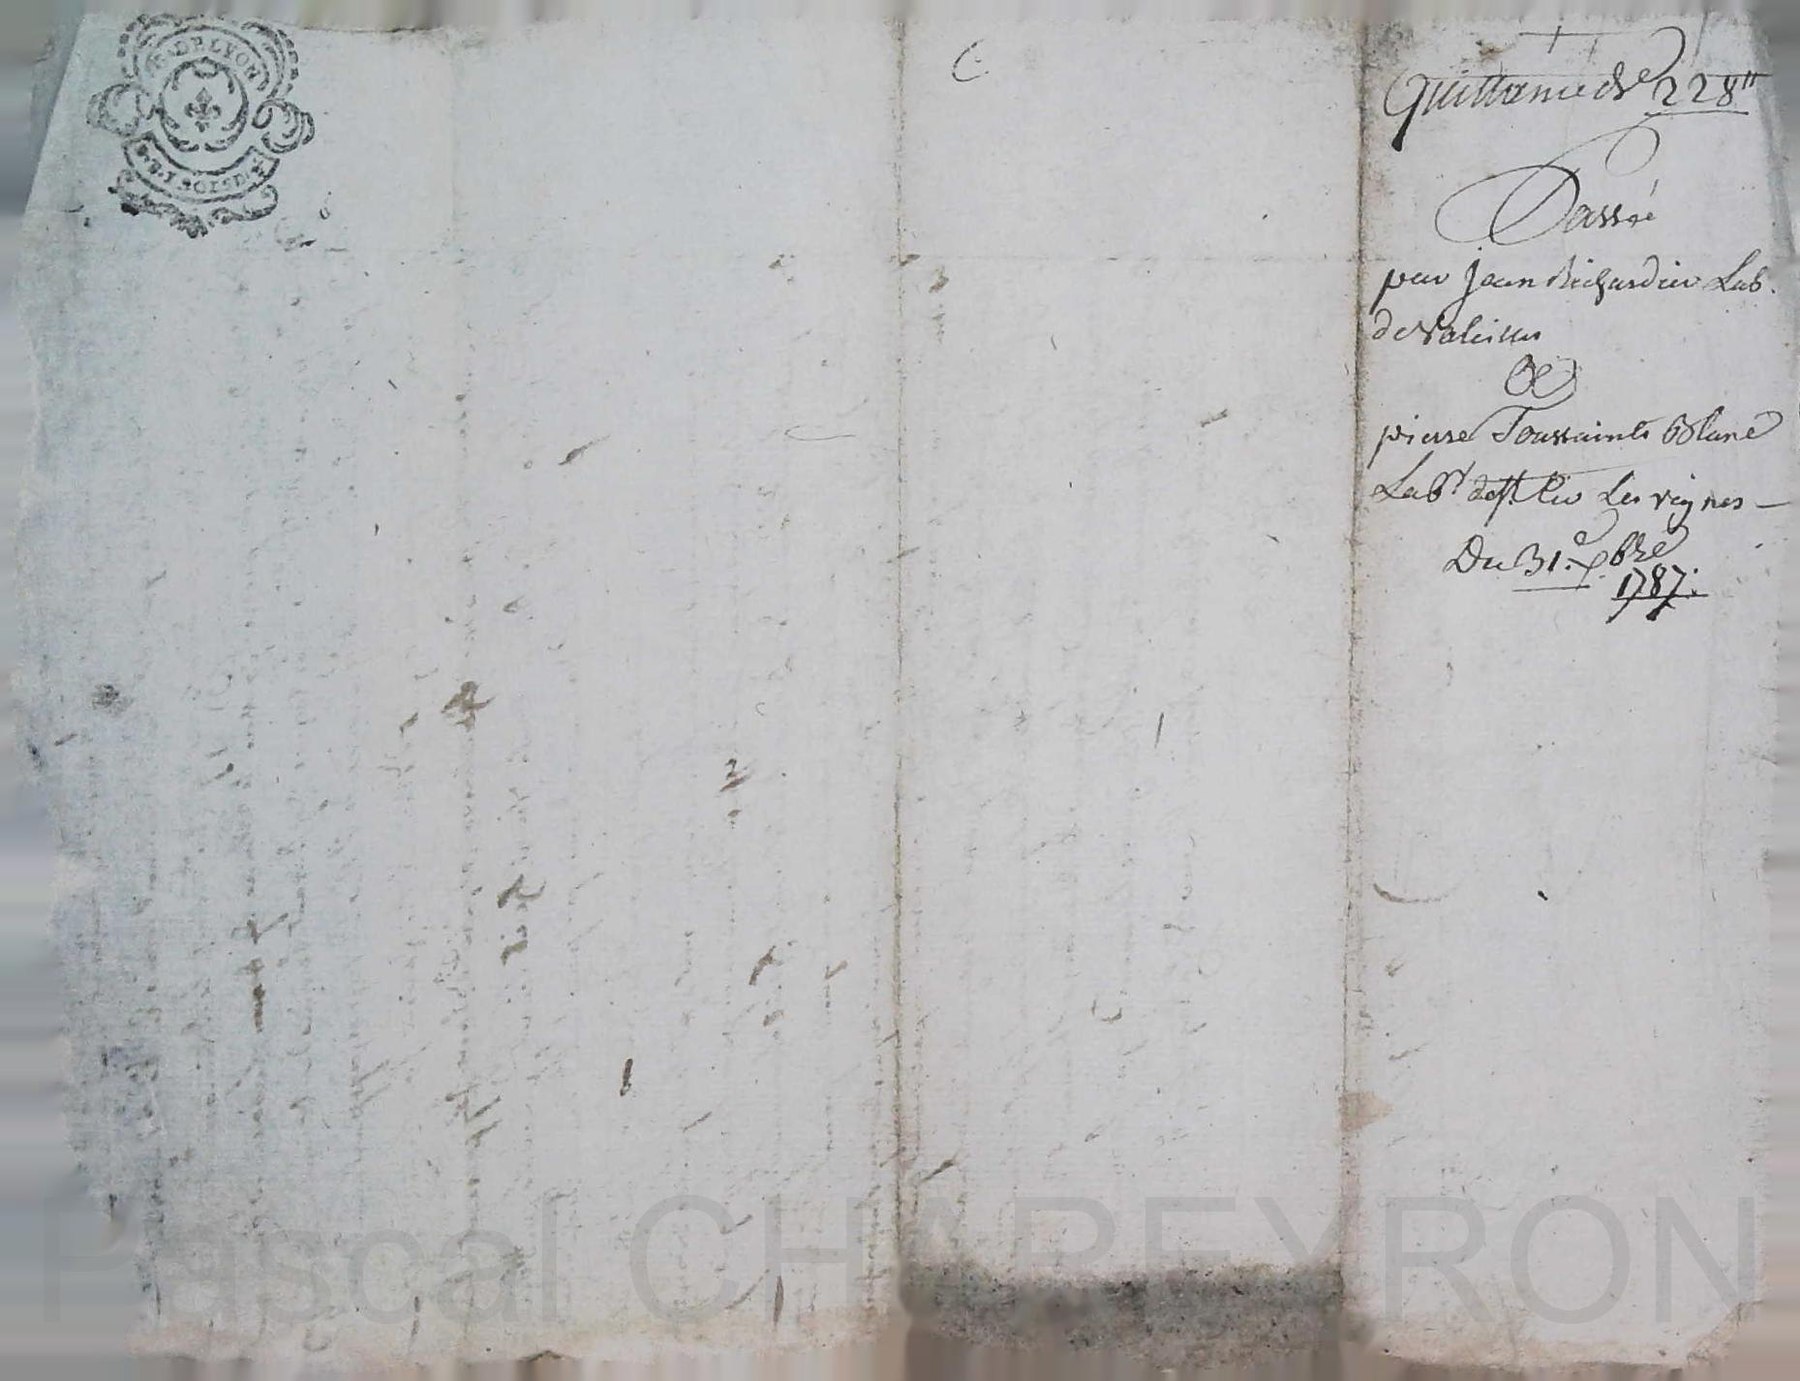 G. DE LYON
Quittance de 228tt
Passée
par Jean Richardier Lab.
de
&
pierre Toussaints Blanc
Labr de st Les vignes
Du 31.e Xbre
1787.
Pascal CHAREYRON